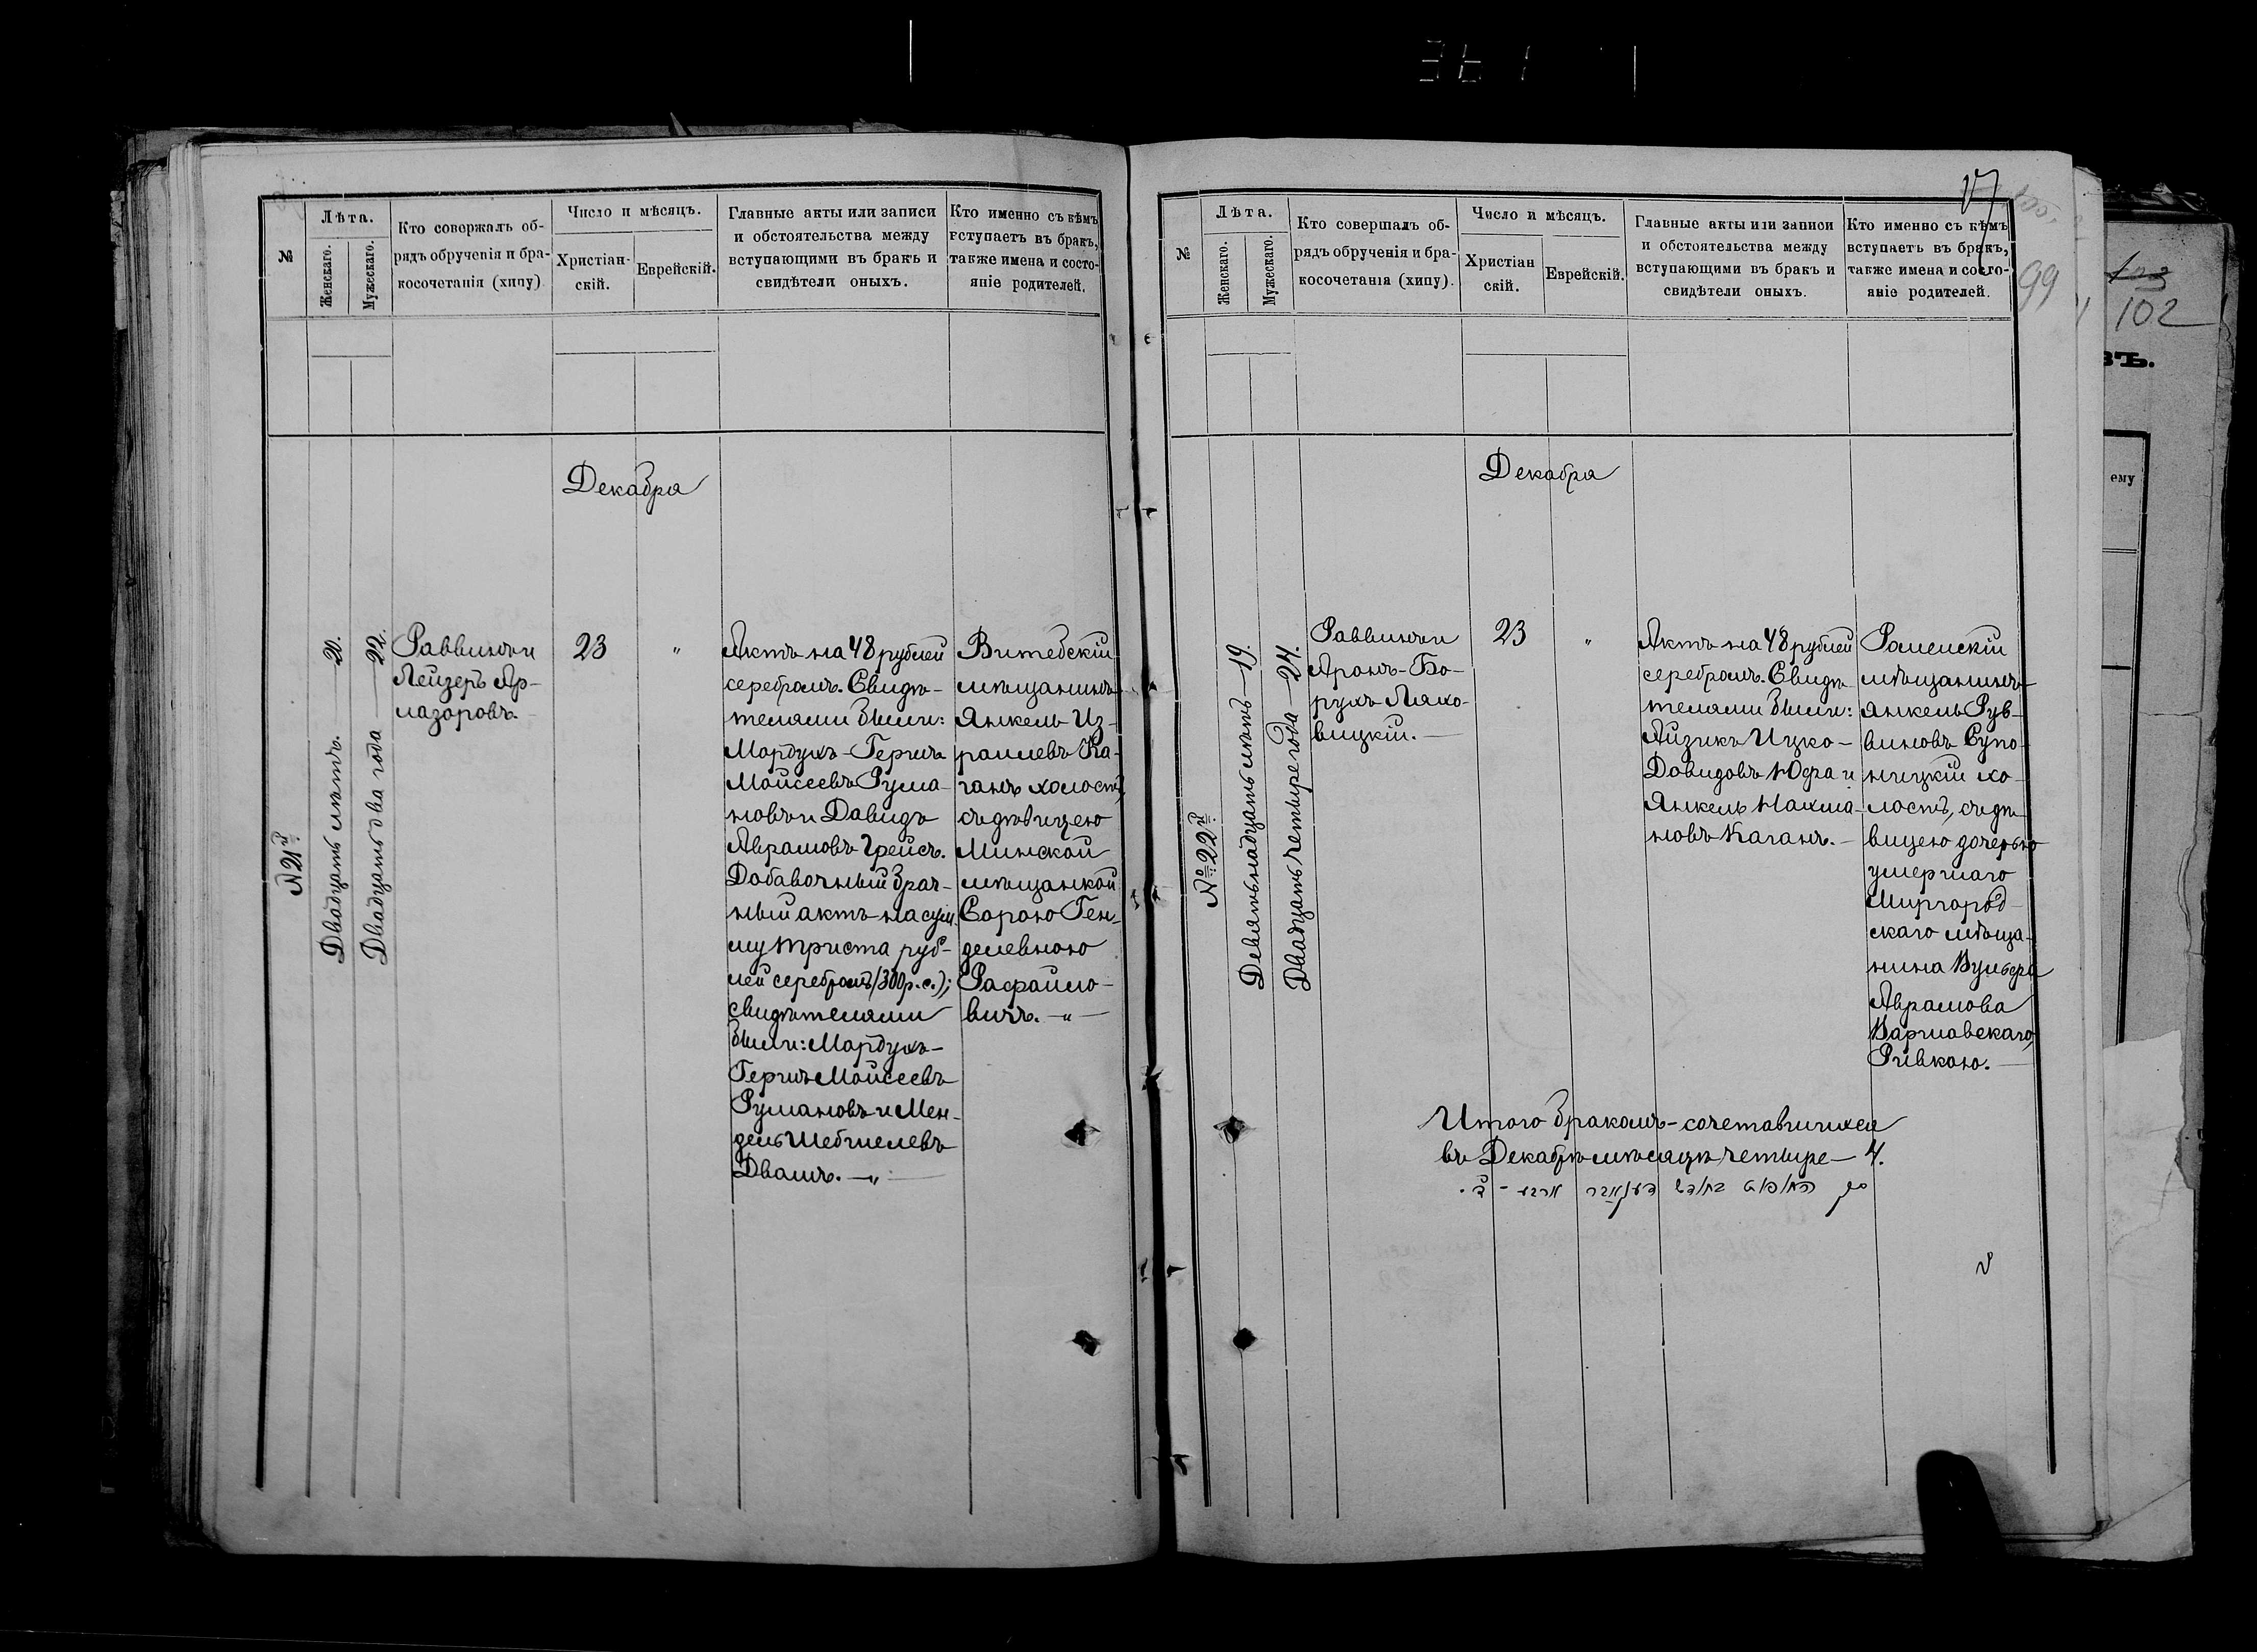 №
Лѣта.
Женскаго.
Мужескаго.
Кто совержалъ об-
рядъ обрученія и бра-
косочетанія (хипу)
Число и мѣсяцъ.
Христіан-
скій.
Еврейскій.
Главные акты или записи
и обстоятельства между
вступающими въ бракъ и
свидѣтели оныхъ.
Кто именно съ кѣмъ
вступаетъ въ бракъ,
также имена и состо-
яніе родителей.
Декабря
№ 21й
Двадцать лѣтъ. — 20.
Двадцать два года — 22.
Раввинъ и
Лейзеръ Ар-
лазоровъ.
23
"
Актъ на 48 рублей
серебромъ. Свидѣ-
телями были:
Мордухъ-Гершъ
Мойсеевъ Рума-
новъ и Давидъ
Аврамовъ Грейсъ.
Добавочный брач-
ный актъ на сум-
му триста руб-
лей серебромъ (300 р. с.);
свидѣтелями
были: Мордухъ-
Гершъ Мойсеевъ
Румановъ и Мен-
дель Шебшелевъ
Двашъ. — " —
Витебскій
мѣщанинъ
Янкель Из-
раилевъ Ка-
ганъ холостъ,
съ дѣвицею
Минской
мѣщанкой
Сорою Ген-
делевною
Рафайло-
вичъ. — " —
№
Лѣта.
Женскаго.
Мужескаго.
Кто совершалъ об-
рядъ обрученія и бра-
косочетанія (хипу).
Число и мѣсяцъ.
Христіан
скій.
Еврейскій.
Главные акты или записи
и обстоятельства между
вступающими въ бракъ и
свидѣтели оныхъ.
Кто именно съ кѣмъ
вступаетъ въ бракъ,
также имена и состо-
яніе родителей.
99
102
ВЪ.
ему
Декабря
№ 22й
Девятьнадцать лѣтъ — 19.
Двадцать четыре года — 24.
Раввинъ и
Аронъ-Бо-
рухъ Ляхо-
вицкій. —
23
"
Актъ на 48 рублей
серебромъ. Свидѣ-
телями были:
Айзикъ Ицко-
Довидовъ Юфа и
Янкель Нахма-
новъ Каганъ. —
Роменскій
мѣщанинъ
Янкель Рув-
виновъ Супо-
ницкій хо-
лостъ, съ дѣ-
вицею дочерью
умершаго
Миргород-
скаго мѣща-
нина Вульфа
Аврамова
Варшавскаго,
Ривкою. —
Итого бракомъ-сочетавшихся
въ Декабрѣ мѣсяцѣ четыре — 4.